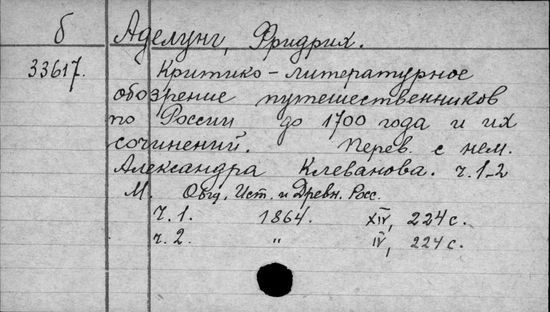 б Аделунг, Фридрих.
33617. Критико-литературное
обозрение путешественников
по России до 1700 года и их
сочинений. Перев. с нем.
Александра Клеванова. ч.1-2
М. Общ. Ист. и Древн. Росс.
ч.1. 1864. XIV, 224 с.
ч.2. " IV, 224 с.